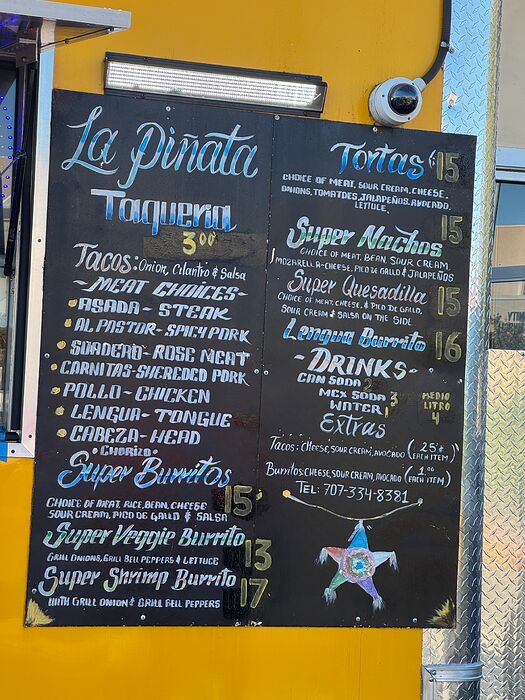 La Piñata
Taqueria
3.00
Tacos: Onion, Cilantro & Salsa
~MEAT CHOICES~
ASADA - STEAK
AL PASTOR - SPICY PORK
SUADERO - ROSE MEAT
CARNITAS - SHEREDED PORK
POLLO - CHICKEN
LENGUA - TONGUE
CABEZA - HEAD
"CHORIZO"
Super Burritos 15
CHOICE OF MEAT, RICE, BEAN, CHEESE
SOUR CREAM, PICO DE GALLO & SALSA
Super Veggie Burrito 13
GRILL ONIONS, GRILL BELL PEPPERS & LETTUCE
Super Shrimp Burrito 17
WITH GRILL ONION & GRILL BELL PEPPERS
Tortas 15
CHOICE OF MEAT, SOUR CREAM, CHEESE,
ONIONS, TOMATOES, JALAPEÑOS, AVOCADO,
LETTUCE,
Super Nachos 15
CHOICE OF MEAT, BEAN, SOUR CREAM
MOZARELLA-CHEESE, PICO DE GALLO & JALAPEÑOS
Super Quesadilla 15
CHOICE OF MEAT, CHEESE, & PICO DE GALLO,
SOUR CREAM & SALSA ON THE SIDE
Lengua Burrito 16
~DRINKS~
CAN SODA 2
MEX SODA 3
WATER 1
MEDIO
LITRO
4
Extras
Tacos: CHEESE, SOUR CREAM, AVOCADO (25¢ EACH ITEM)
Burritos: CHEESE, SOUR CREAM, AVOCADO (1.00 EACH ITEM)
TEL: 707-334-8381